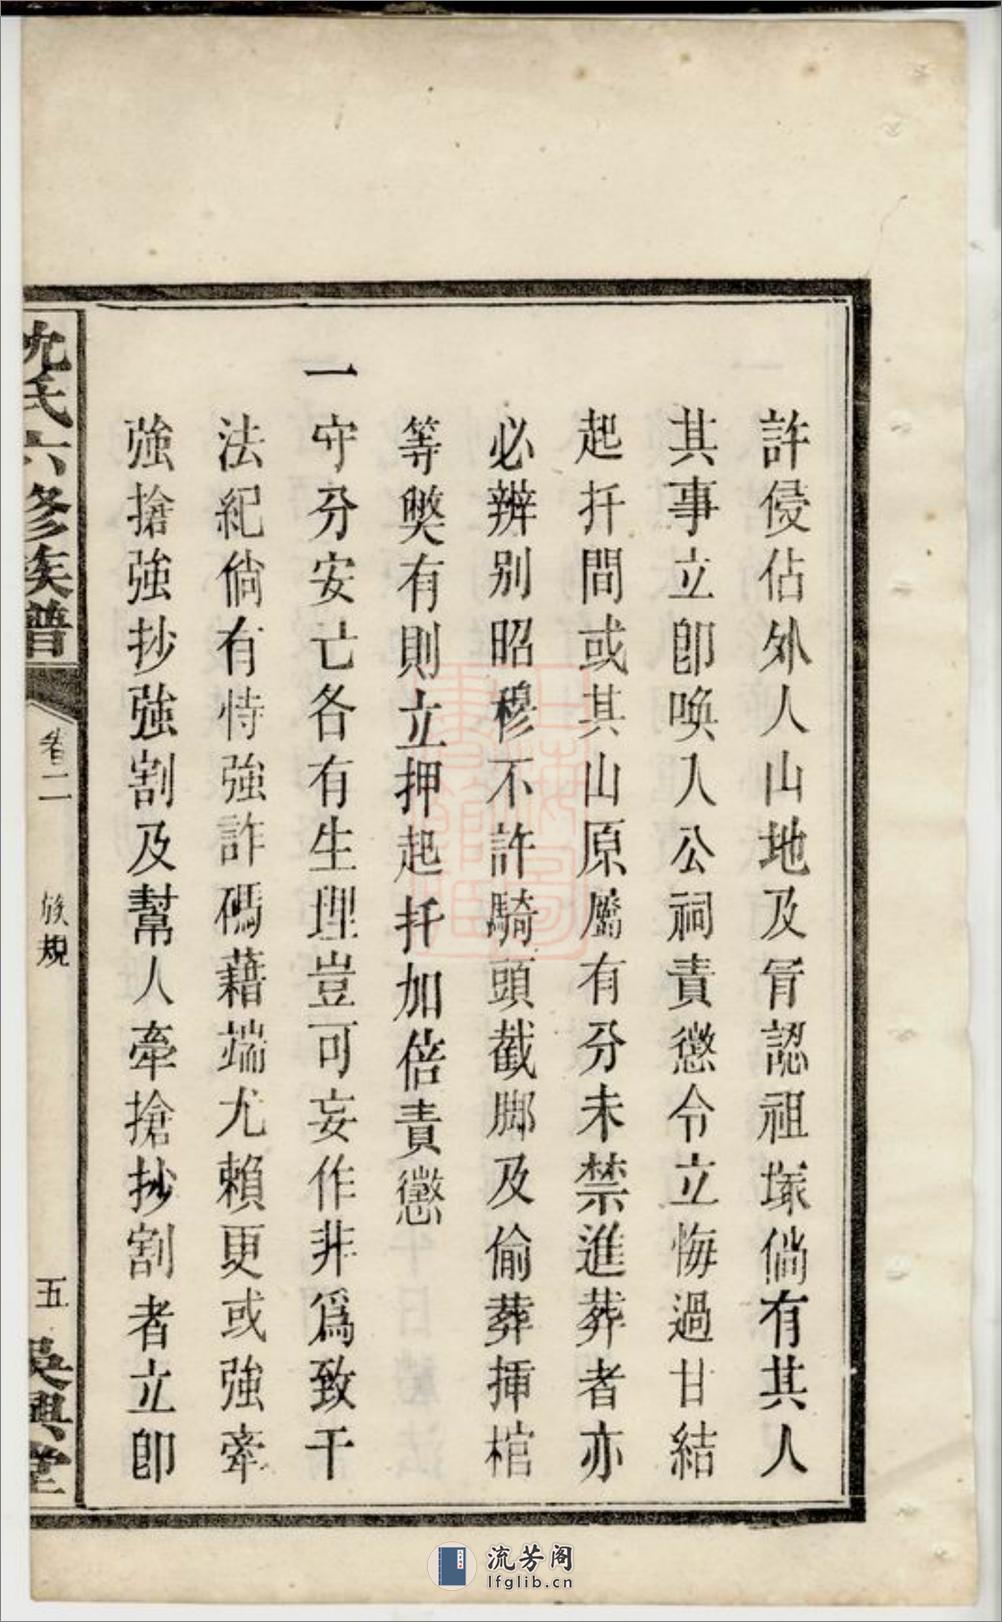 許侵佔外人山地及冐認祖塚倘有其人
其事立卽喚入公祠責懲令立悔過甘結
起扦間或其山原屬有分未禁進葬者亦
必辨别昭穆不許騎頭截脚及偷葬挿棺
等獘有則立押起扦加倍責懲
一守分安亡各有生理豈可妄作非爲致干
法紀倘有恃強詐碼藉端尤賴更或強牽
強搶強抄強割及幫人牽搶抄割者立卽
沈氏六修族譜
卷二
族規
五
吳興堂
流芳阁
lfglib.cn